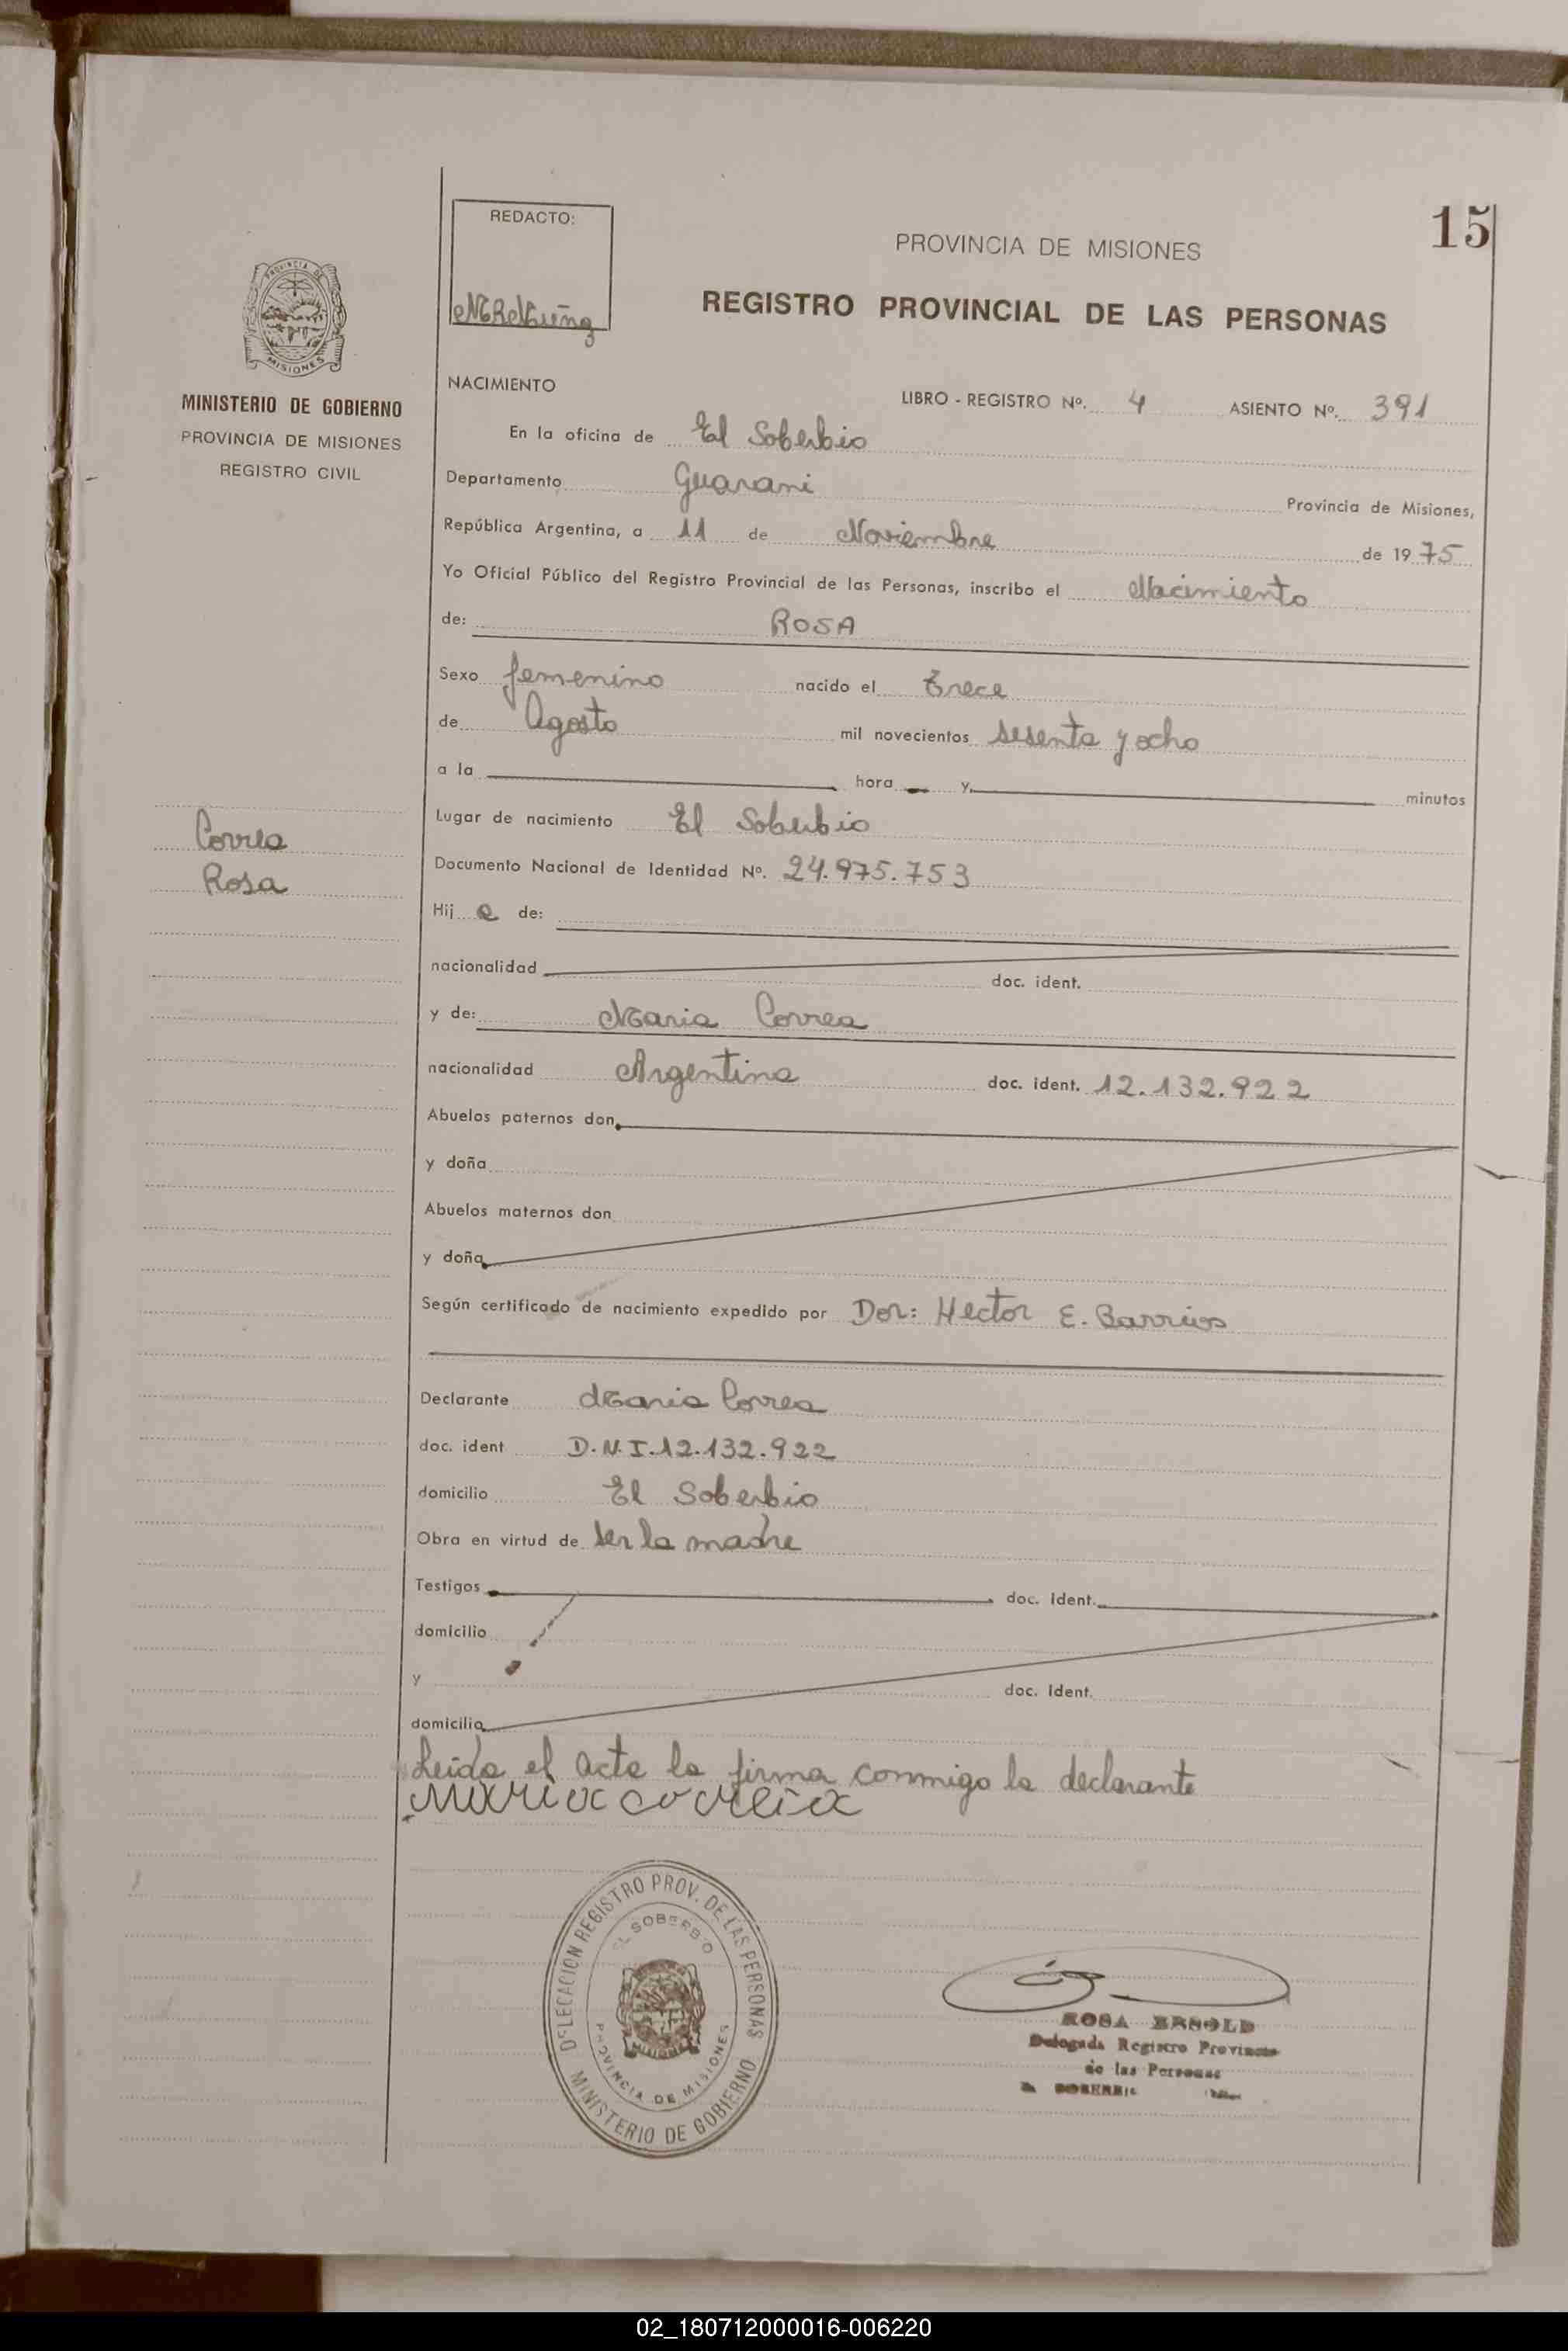 15
REDACTO:
PROVINCIA DE MISIONES
REGISTRO PROVINCIAL DE LAS PERSONAS
PROVINCIA DE
MISIONES
MINISTERIO DE GOBIERNO
PROVINCIA DE MISIONES
REGISTRO CIVIL
NACIMIENTO
LIBRO - REGISTRO Nº. 4 ASIENTO Nº. 391
En la oficina de El Soberbio
Departamento Guarani Provincia de Misiones,
República Argentina, a 11 de Noviembre de 1975
Yo Oficial Público del Registro Provincial de las Personas, inscribo el Nacimiento
de: ROSA
Sexo femenino nacido el Trece
de Agosto mil novecientos sesenta y ocho
a la hora y minutos
Lugar de nacimiento El Soberbio
Correa
Rosa
Documento Nacional de Identidad Nº. 24.975.753
Hij a de:
nacionalidad doc. ident.
y de: Maria Correa
nacionalidad Argentina doc. ident. 12.132.922
Abuelos paternos don
y doña
Abuelos maternos don
y doña
Según certificado de nacimiento expedido por Dor: Hector E. Barrios
Declarante Maria Correa
doc. ident D.N.I.12.132.922
domicilio El Soberbio
Obra en virtud de ser la madre
Testigos doc. ident.
domicilio
y doc. ident.
domicilio
Leida el acta la firma conmigo la declarante
Maria correia
DELEGACION REGISTRO PROV. DE LAS PERSONAS
EL SOBERBIO
PROVINCIA DE MISIONES
MINISTERIO DE GOBIERNO
ROSA
Delegada Registro Provincial
de las Personas
02_180712000016-006220